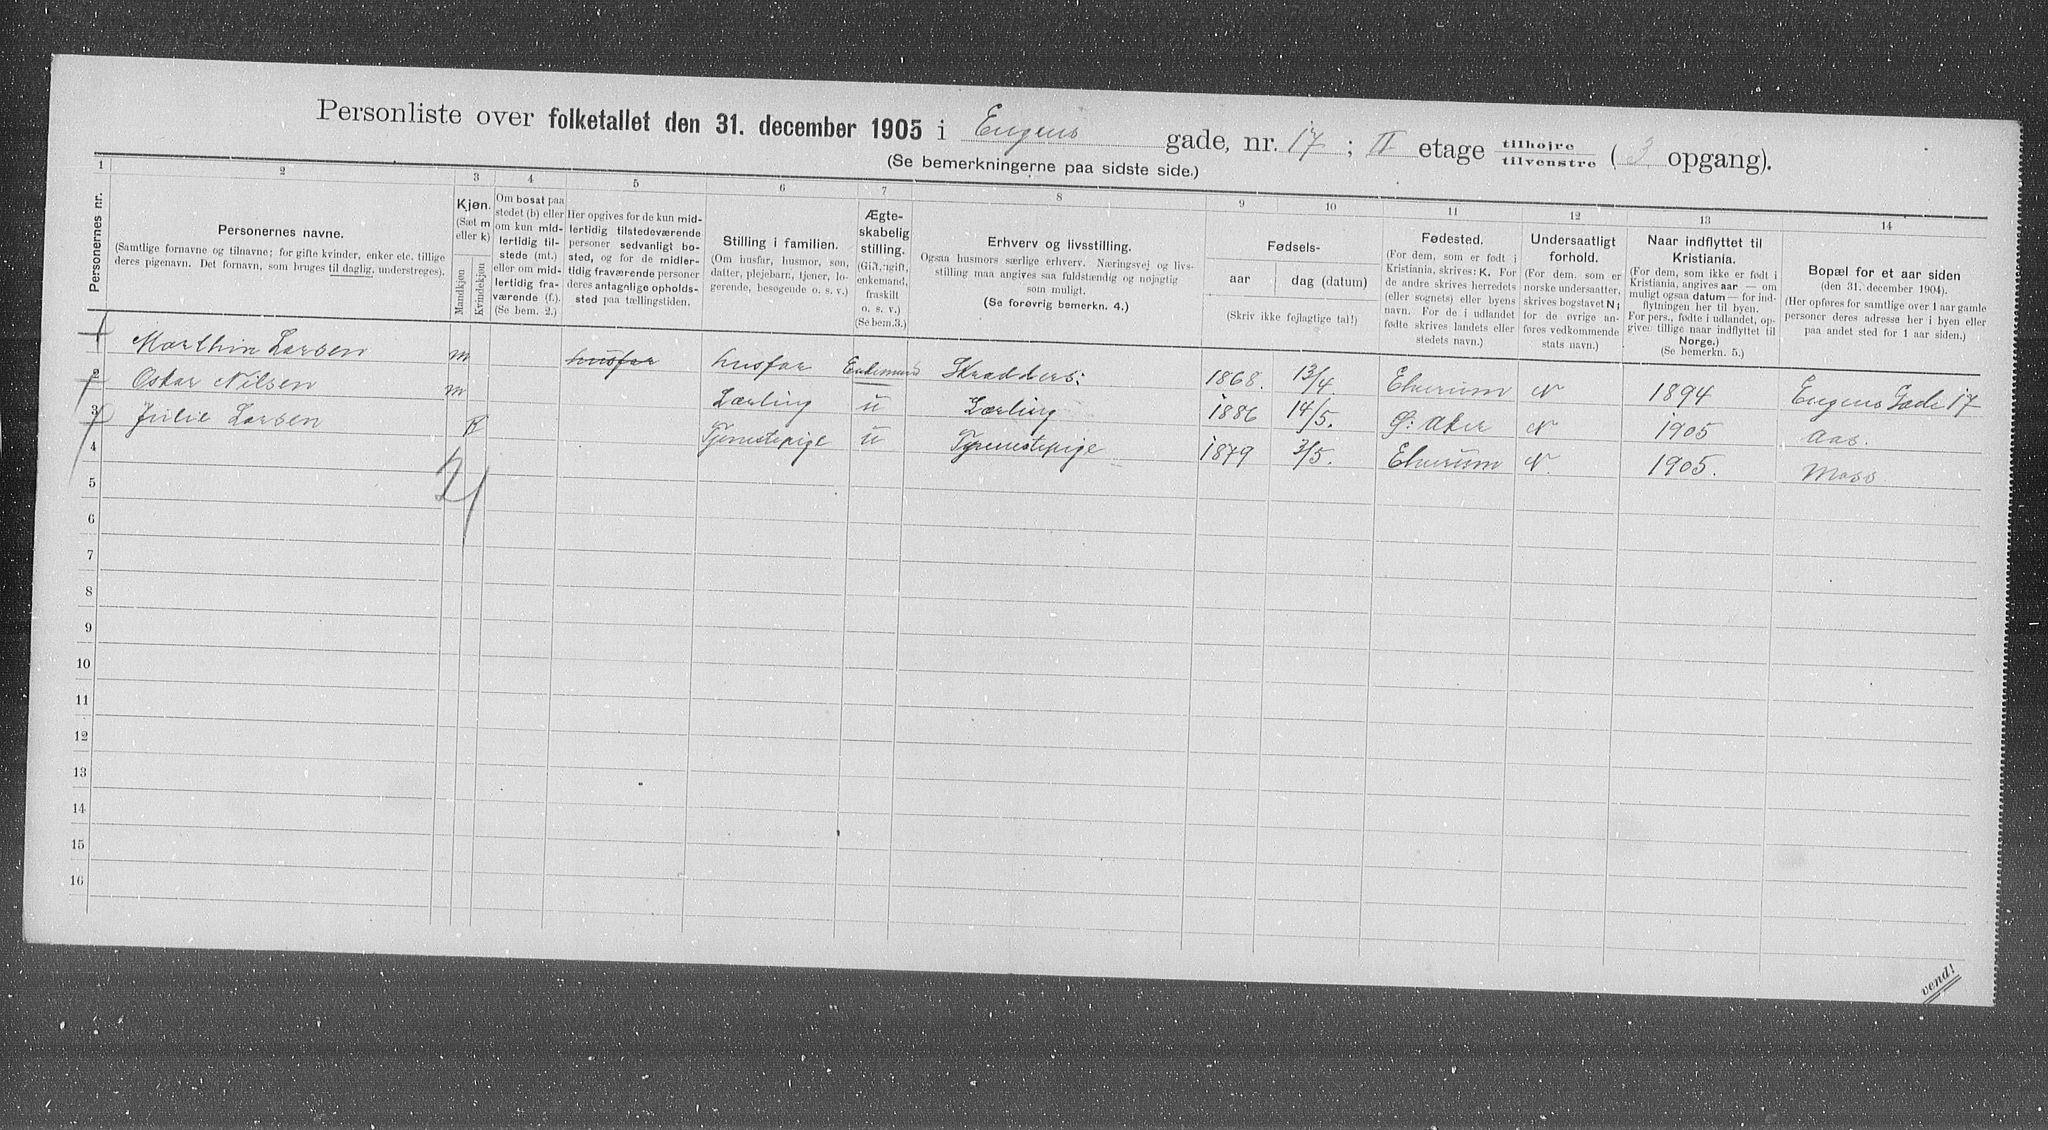 Personliste over folketallet den 31. december 1905 i Eugens gade, nr. 17; II etage tilhøjre/tilvenstre (3 opgang).
(Se bemerkningerne paa sidste side.)
1 2 3 4 5 6 7 8 9 10 11 12 13 14
Personernes nr.
Personernes navne.
(Samtlige fornavne og tilnavne; for gifte kvinder, enker etc. tillige
deres pigenavn. Det fornavn, som bruges til daglig, understreges).
Kjøn.
(Sæt m
eller k)
Mandkjøn
Kvindekjøn
Om bosat paa
stedet (b) eller
om kun mid-
lertidig til-
stede (mt.)
eller om mid-
lertidig fra-
værende (f.).
(Se bem. 2.)
Her opgives for de kun mid-
lertidig tilstedeværende
personer sedvanligt bo-
sted, og for de midler-
tidig fraværende personer
deres antagnlige opholds-
sted paa tællingstiden.
Stilling i familien.
(Om husfar, husmor, søn,
datter, plejebarn, tjener, lo-
gerende, besøgende o. s. v.)
Ægte-
skabelig
stilling.
(Gift, ugift,
enkemand,
fraskilt
o. s. v.)
(Se bem.3.)
Erhverv og livsstilling.
Ogsaa husmors særlige erhverv. Næringsvej og livs-
stilling maa angives saa fuldstændig og nøjagtig
som muligt.
(Se forøvrig bemerkn. 4.)
Fødsels-
aar
dag (datum)
(Skriv ikke fejlagtige tal!)
Fødested.
(For dem, som er født i
Kristiania, skrives: K. For
de andre skrives herredets
(eller sognets) eller byens
navn. For de i udlandet
fødte skrives landets eller
stedets navn.)
Undersaatligt
forhold.
(For dem, som er
norske undersaatter,
skrives bogstavet N;
for de øvrige an-
føres vedkommende
stats navn.)
Naar indflyttet til
Kristiania.
(For dem, som ikke er født i
Kristiania, angives aar — om
muligt ogsaa datum — for ind-
flytningen her til byen.
For pers., fødte i udlandet, op-
gives tillige naar indflyttet til
Norge.)
(Se bemerkn. 5.)
Bopæl for et aar siden
(den 31. december 1904).
(Her opføres for samtlige over 1 aar gamle
personer deres adresse her i byen eller
paa andet sted for 1 aar siden.)
1 Marthin Larsen m husfar husfar Enkemand Skrædders: 1868. 13/4 Elverum N 1894 Eugens Gade 17
2 Oskar Nilsen m Lærling u Lærling 1886 14/5. Ø: Aker N 1905 Aas.
3 Julie Larsen K Tjenestepige u Tjenestepige 1879 3/5. Elverum N. 1905. Moss
4
5
6
7
8
9
10
11
12
13
14
15
16
vend!